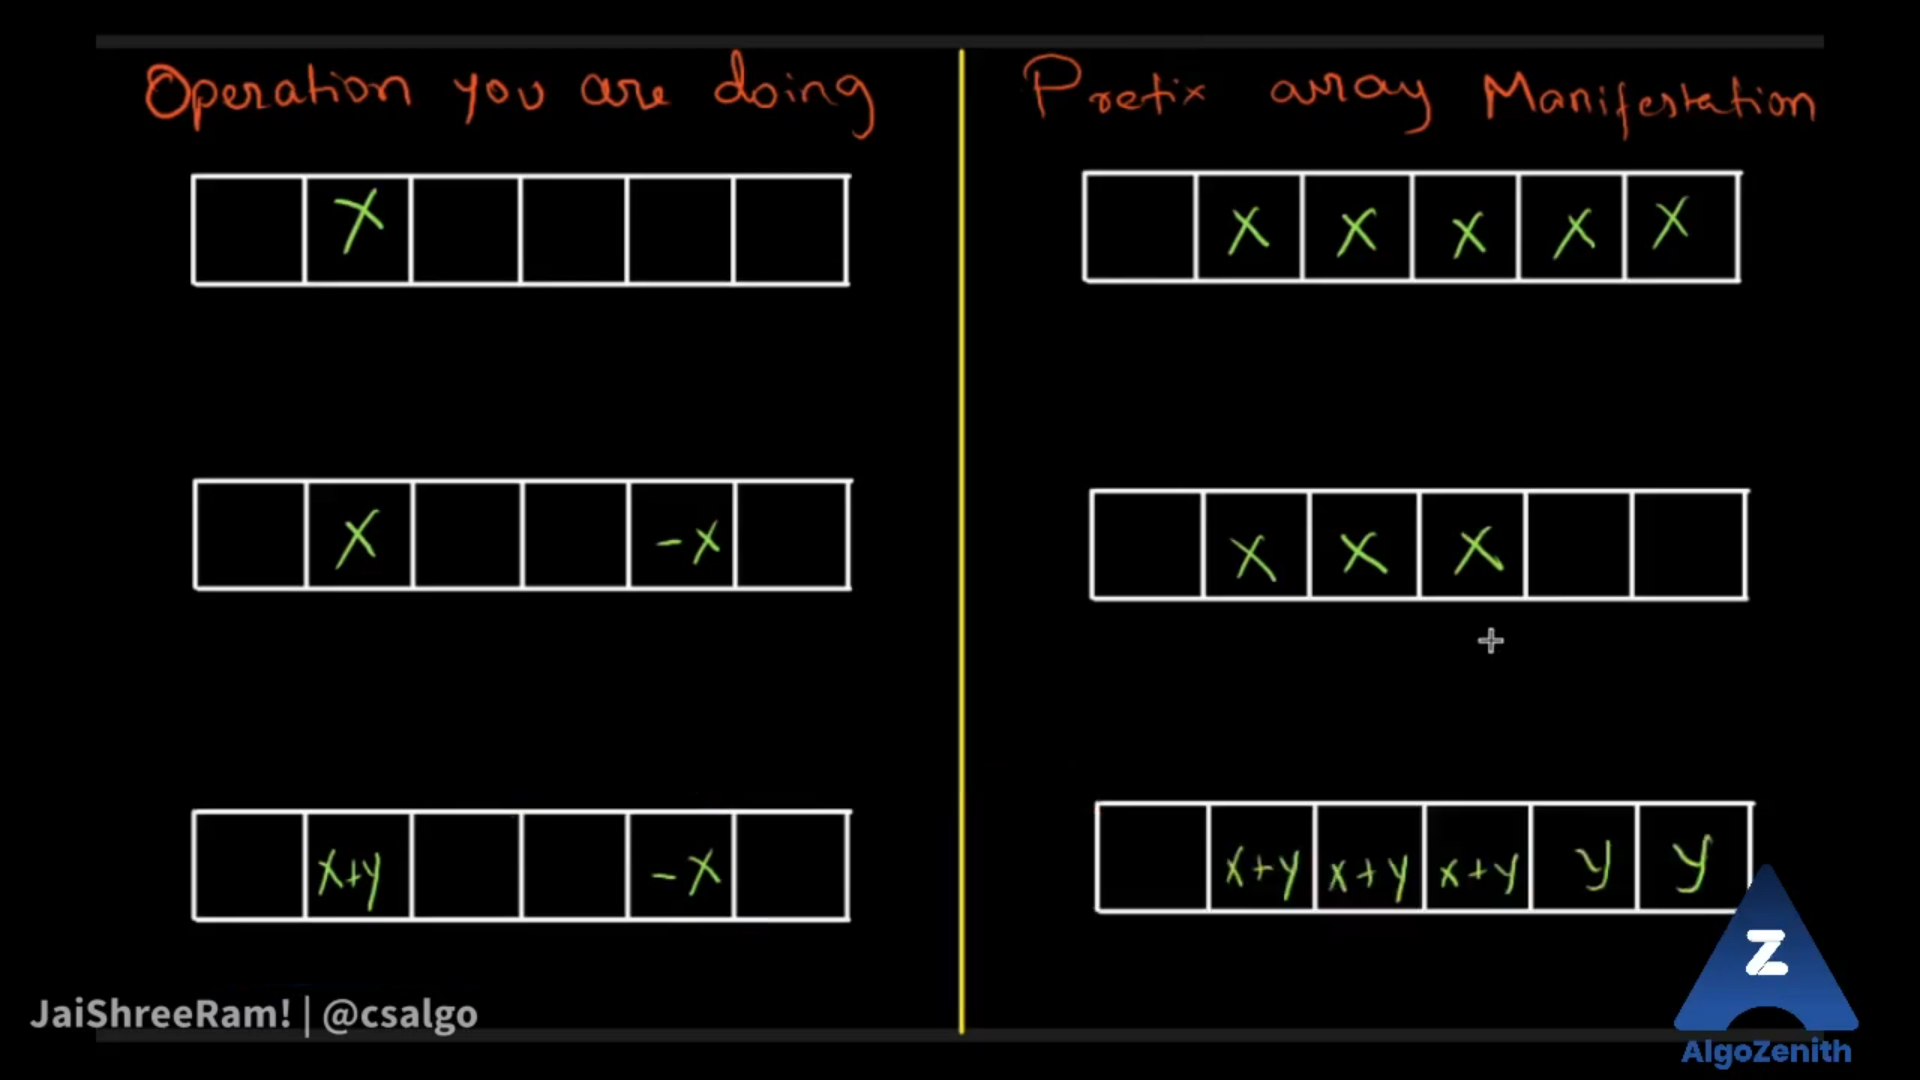 Operation you are doing
Prefix array Manifestation
X
X X X X X
X -X
X X X
X+y -X
X+y X+y X+y y y
JaiShreeRam! | @csalgo
Z
AlgoZenith